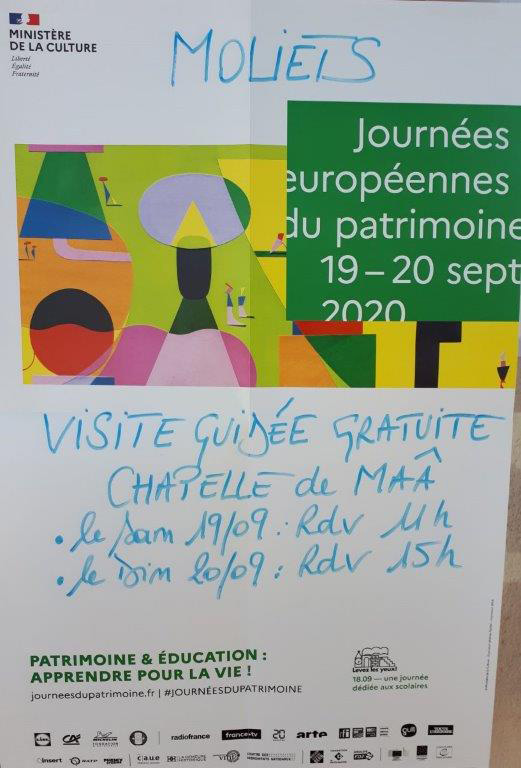 MINISTÈRE
DE LA CULTURE
Liberté
Égalité
Fraternité
MOLIETS
Journées
européennes
du patrimoine
19 – 20 sept
2020
VISITE GUIDÉE GRATUITE
CHAPELLE de MAÂ
• le Sam 19/09 : Rdv 11h
• le Dim 20/09 : Rdv 15h
PATRIMOINE & ÉDUCATION :
APPRENDRE POUR LA VIE !
journeesdupatrimoine.fr | #JOURNÉESDUPATRIMOINE
Levez les yeux!
18.09 — une journée
dédiée aux scolaires
MICHELIN
radiofrance
france•tv
20
arte
gulli
insert
RATP
c|a.u.e